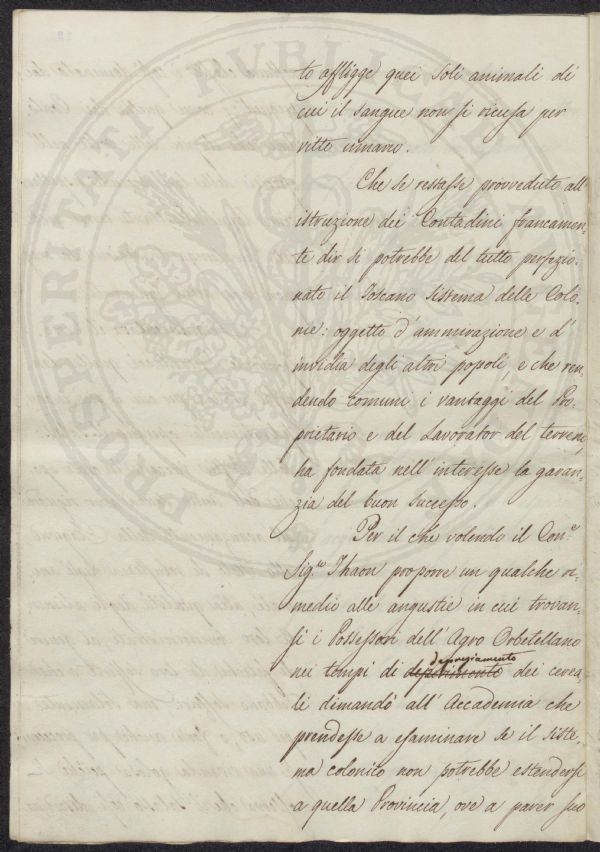 to affligge quei soli animali di
cui il sangue non si ricusa per
vitto umano.
Che se restasse provveduto all'
istruzione dei Contadini francamen-
te dir si potrebbe del tutto perfezio-
nato il Toscano sistema delle Colo-
nie: oggetto d'ammirazione e d'
invidia degli altri popoli, e che ren-
dendo comuni i vantaggi del Pro-
prietario e del Lavorator del terreno,
ha fondata nell'interesse la garan-
zia del buon successo.
Per il che volendo il Con.e
Sig.re Thaon proporre un qualche ri-
medio alle angustie in cui trovan-
si i Possessori dell'Agro Orbetellano
depregiamento
nei tempi di deperimento dei cerea-
li dimandò all'Accademia che
prendesse a esaminare se il siste-
ma colonico non potrebbe estendersi
a quella Provincia, ove a parer suo
PROSPERITATI PVBLICAE